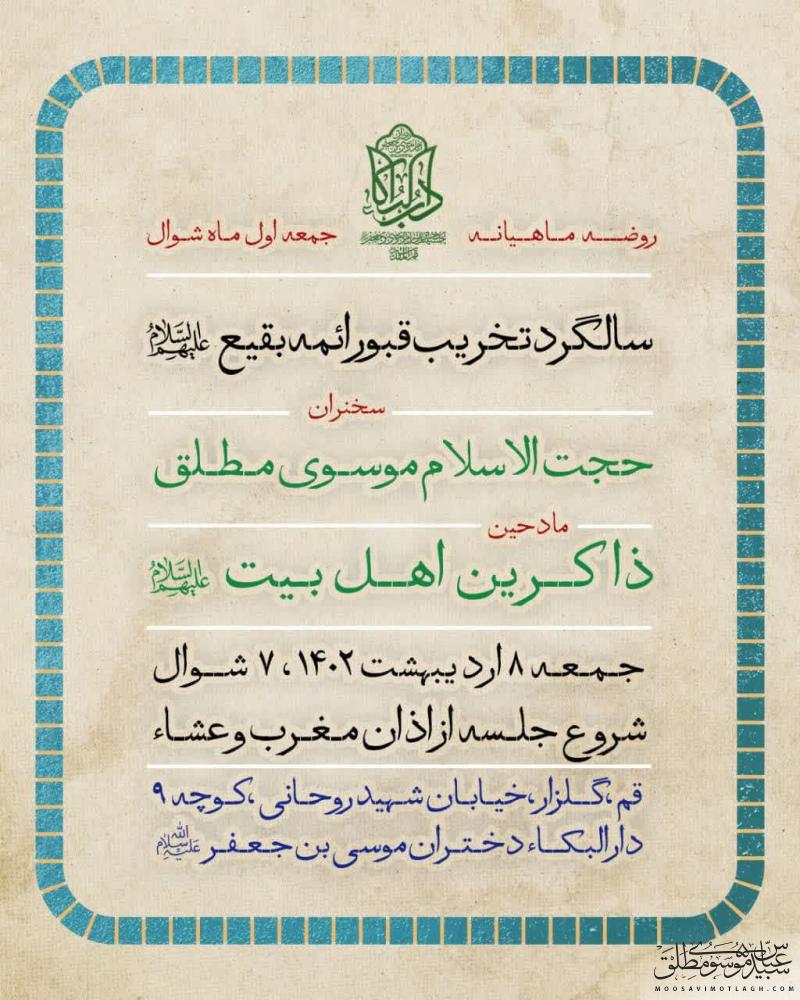 دارالبکاء
روضه ماهیانه
جمعه اول ماه شوال
سالگرد تخریب قبور ائمه بقیع علیهم السلام
سخنران
حجت الاسلام موسوی مطلق
مادحین
ذاکرین اهل بیت علیهم السلام
جمعه ۸ اردیبهشت ۱۴۰۲، ۷ شوال
شروع جلسه از اذان مغرب و عشاء
قم، گلزار، خیابان شهید روحانی، کوچه ۹
دارالبکاء دختران موسی بن جعفر سلام الله علیه
سید عباس موسوی مطلق
MOOSAVIMOTLAGH.COM